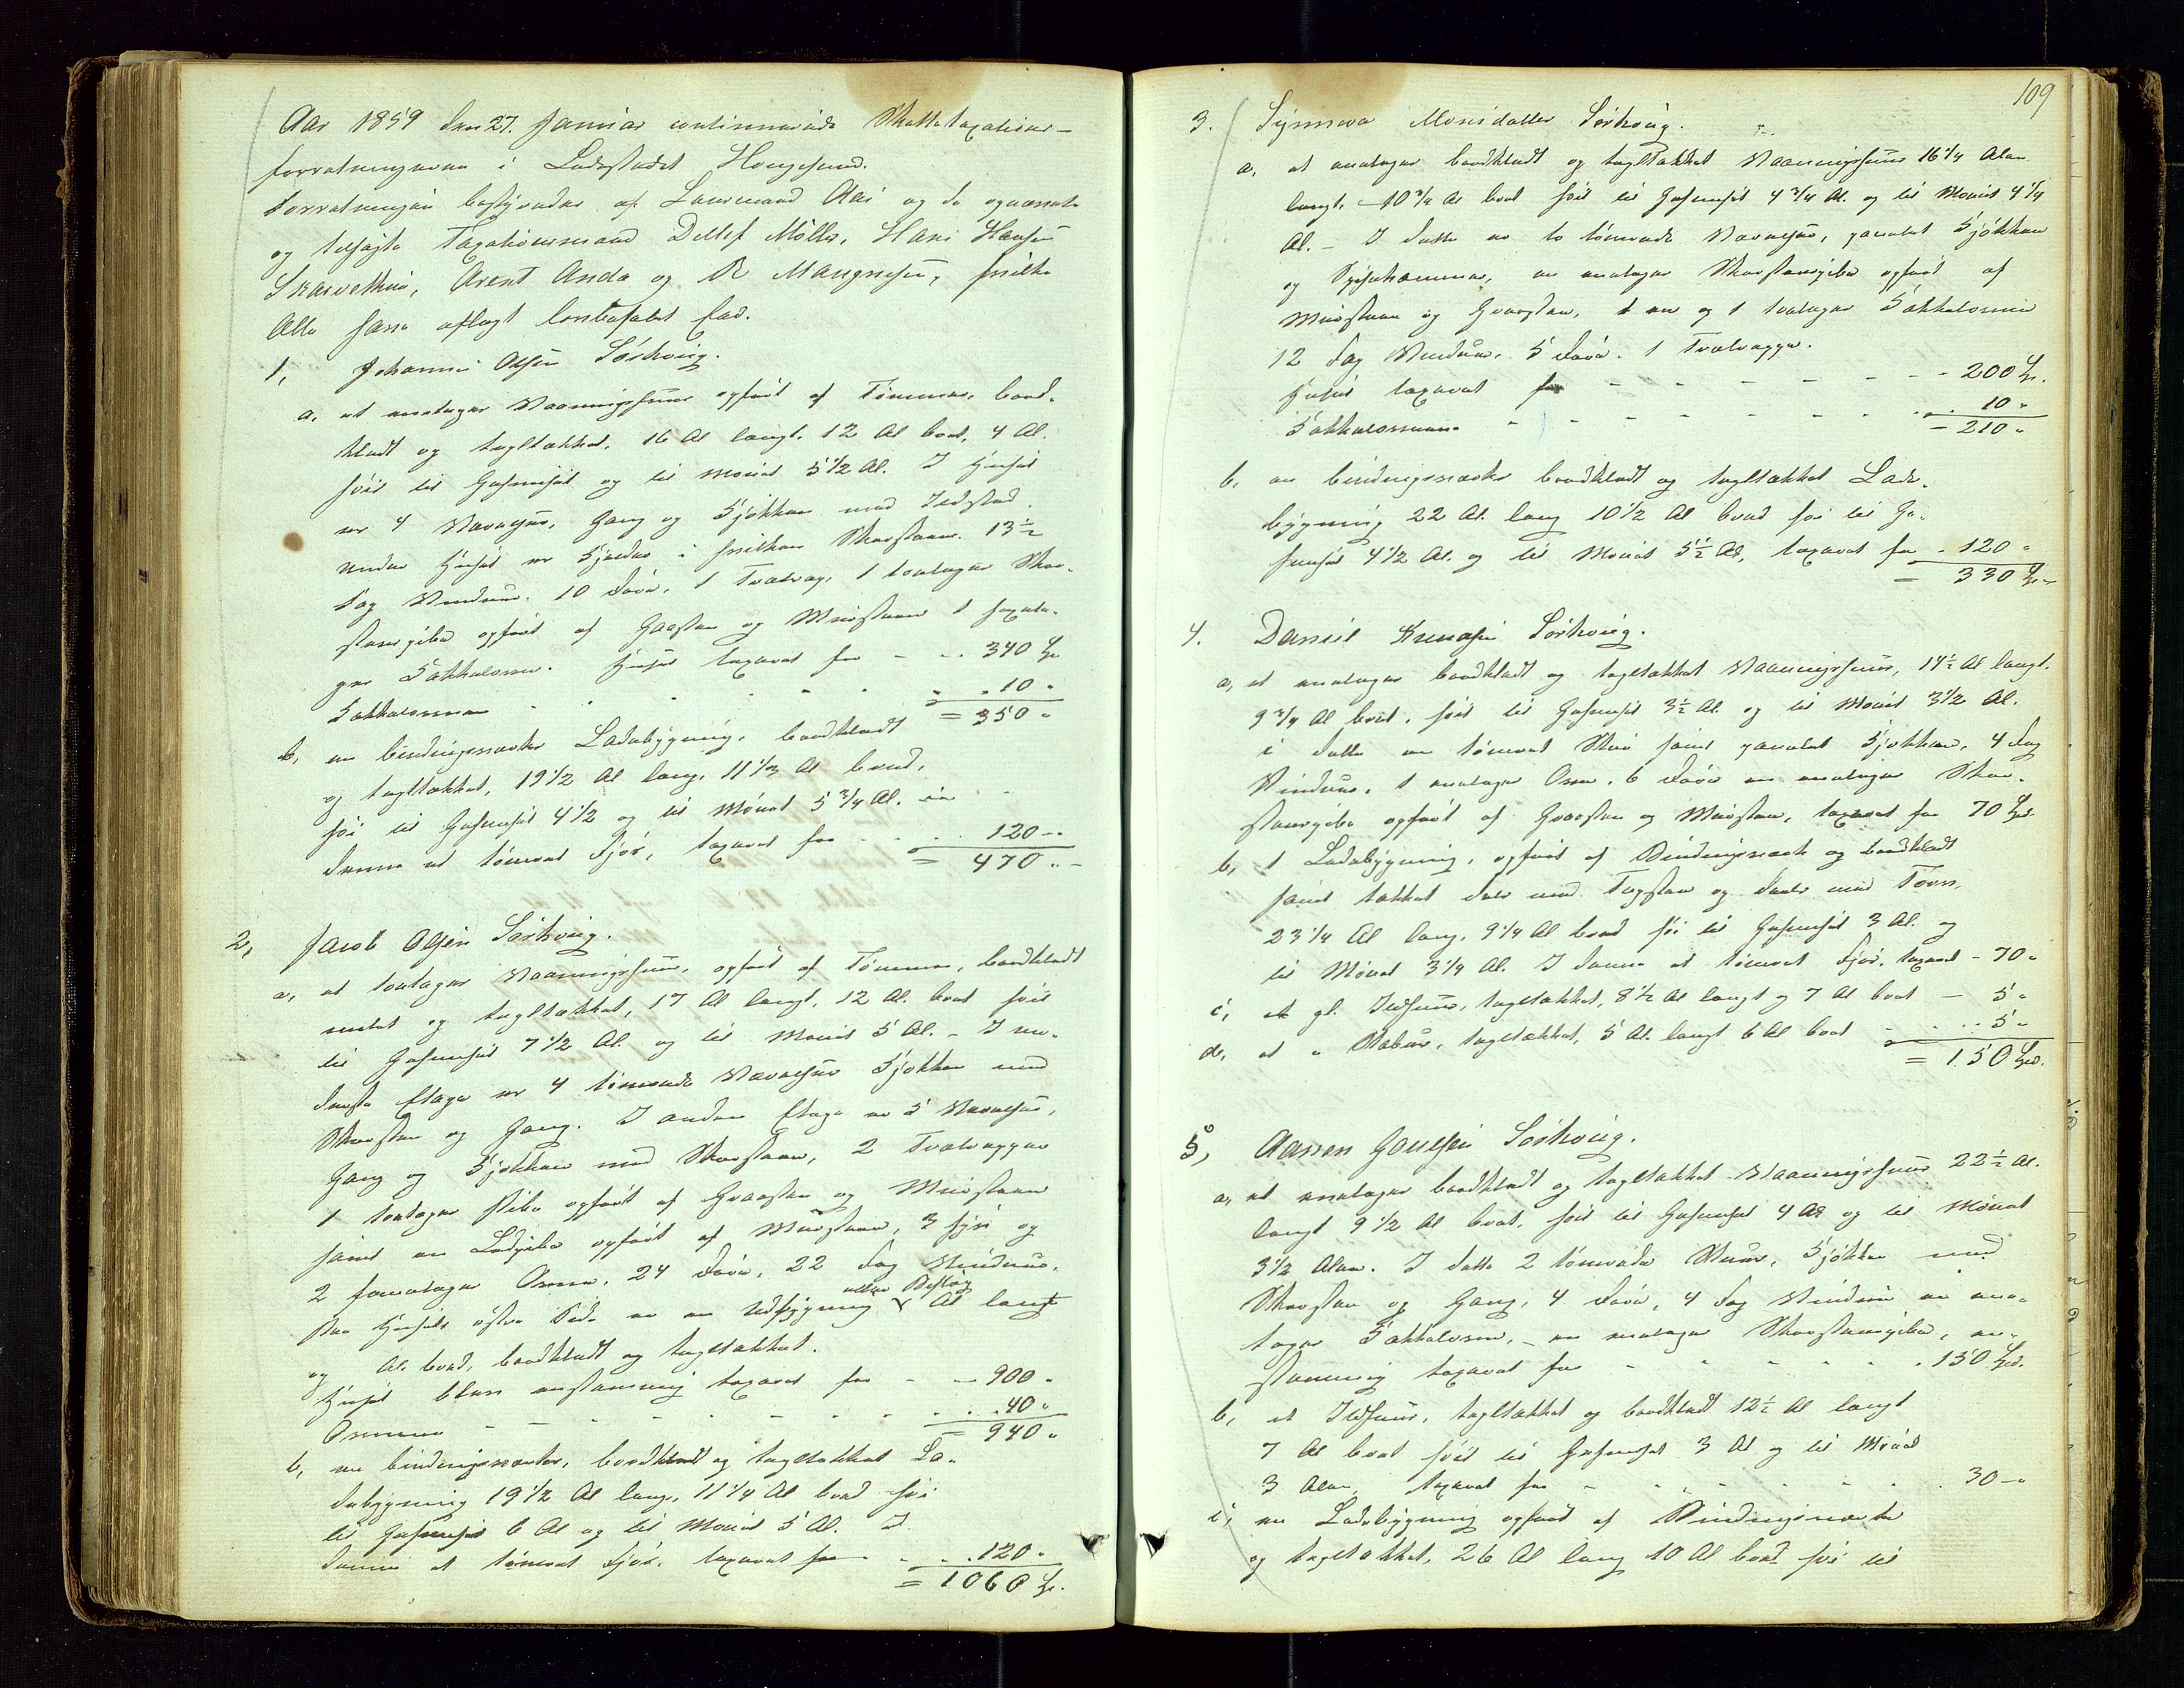 Aar 1859 den 27. Januar continuerede Skattetaxations-
forretningerne i Ladestedet Haugesund.
Forretningen bestyredes af Lensmand Aar og de opnævnte
og tilsagte Taxationsmænd Detlef Möller, Hans Hansen
Skarvethin, Arent Anda og R Mangnesen, hvilke
Alle have aflagt Lovbefalet Eed.
1, Johannes Olsen Sörhoug.
a, et enetages Vaaningshuus opført af Tømmer, bord-
klædt og tagltækket, 16 Al langt, 12 Al bredt, 4 Al.
höit til Gesimsen og til Mønet 5 1/2 Al. I Huset
er 4 Værelser, Gang og Kjøkken med Ildsted.
under Huset er Kjælder i hvilken Skorsteen. 13 1/2
Fag Vinduer. 10 Døre, 1 Trætrap, 1 toetages Skor-
steenspibe opført af Graasten og Muursteen 1 
ges Kakkelovn. Huset taxeret for - - 340 Spd
Kakkelovnen " " " " 10 "
= 350 "
b, en bindingsværks Ladebygning, bordklædt
og tagltækket, 19 1/2 Al lang, 11 1/3 Al bred,
höi til Gesimsen 4 1/2 og til Mønet 5 3/4 Al. i
denne et tømret Fjøs, taxeret for - - 120 -
= 470 " -
2, Jacob Olsen Sörhoug.
a, et toetages Vaaningshuus, opført af Tømmer, bordklædt
malet og tagltækket, 17 Al langt, 12 Al. bredt höit
til Gesimsen 7 1/2 Al. og til Mønet 5 Al. - I ne-
derste Etage er 4 tømrede Værelser Kjøkken med
Skorsteen og Gang. I anden Etage er 5 Værelser,
Gang og Kjøkken med Skorsteen, 2 Trætrapper
1 toetages Pibe opført af Graasten og Muursteen
samt en Ladpibe opført af Muursteen, 3 og
2 toetages Ovne. 24 Døre, 22 Fag Vinduer.
paa Husets østre Side er en Udbygning uden Beslag Al lang
og Al. bred, bordklædt og tagltækket.
Huset blev enstemmig taxeret for - - 900 "
Ovnene - - - - - - 40 "
= 940 "
b, en bindingsværks, bordklædt og tagltækket La-
debygning 19 1/2 Al lang, 11 1/4 Al bred höi
til Gesimsen 6 Al og til Mønet 5 Al. I
denne et tømret Fjøs. taxeret for - - 120 "
= 1060 Spd.
109
3. Synneva Monsdatter Sörhoug.
a, et enetages bordklædt og tagltækket Vaaningshuus 16 1/4 Alen
langt. 10 3/4 Al bredt höit til Gesimsen 4 3/4 Al. og til Mønet 4 1/4
Al. - I dette er to tømrede Værelser, panelet Kjøkken
og Spisekammer, en enetages Skorsteenspibe opført af
Muursteen og Graasten, 1 en og 1 toetages Kakkelovne
12 Fag Vinduer, 5 Døre. 1 Trætrappe.
Huset taxeret for - - - - - - 200 Spd.
Kakkelovnene - - - - - - 10 "
- 210 "
b, en bindingsværks bordklædt og tagltækket Lade-
bygning 22 Al. lang 10 1/2 Al bred höi til Ge-
simsen 4 1/2 Al. og til Mønet 5 1/2 Al, taxeret for - 120 "
= 330 Spd -
4. Daniel Knudsen Sörhoug.
a, et enetages bordklædt og tagltækket Vaaningshuus, 14 1/2 Al langt.
9 3/4 Al bredt, höit til Gesimsen 3 1/2 Al. og til Mønet 3 1/2 Al.
i dette en tømret Stue samt panelet Kjøkken, 4 Fag
Vinduer, 1 enetages Ovn. 6 Døre en enetages Skor-
steenspibe opført af Graasten og Muursten, taxeret for 70 Spd.
b, 1 Ladebygning, opført af Bindingsværk og bordklædt
samt tækket deels med Tagsten og deels med Torv.
23 1/4 Al lang, 9 1/4 Al bred höi til Gesimsen 3 Al. og
til Mønet 3 1/4 Al. I denne et tømret Fjøs. taxeret - 70 "
c, et gl. Ildhuus, tagltækket, 8 1/2 Al langt og 7 Al bredt - 5 "
d, et " Stabur, tagltækket, 5 Al. langt 6 Al bredt - - 5 "
= 150 Spd.
5, Aanen Goutsen Sörhoug.
a, et enetages bordklædt og tagltækket Vaaningshuus 22 1/2 Al.
langt 9 1/2 Al bredt, höit til Gesimsen 4 Al og til Mønet
3 1/2 Alen. I dette 2 tømrede Stuer, Kjøkken med
Skorsten og Gang, 4 Døre, 4 Fag Vinduer en ene-
tages Kakkelovn, - en enetages Skorsteenspibe, en-
stemmig taxeret for - - - - - 150 Spd.
b, et Ildhuus, tagltækket og bordklædt 12 1/2 Al langt
7 Al bredt höit til Gesimsen 3 Al og til Mønet
3 Alen, taxeret for - - - - - 30 - "
c, en Ladebygning opført af Bindingsværk
og tagltækket, 26 Al lang 10 Al bred höi til